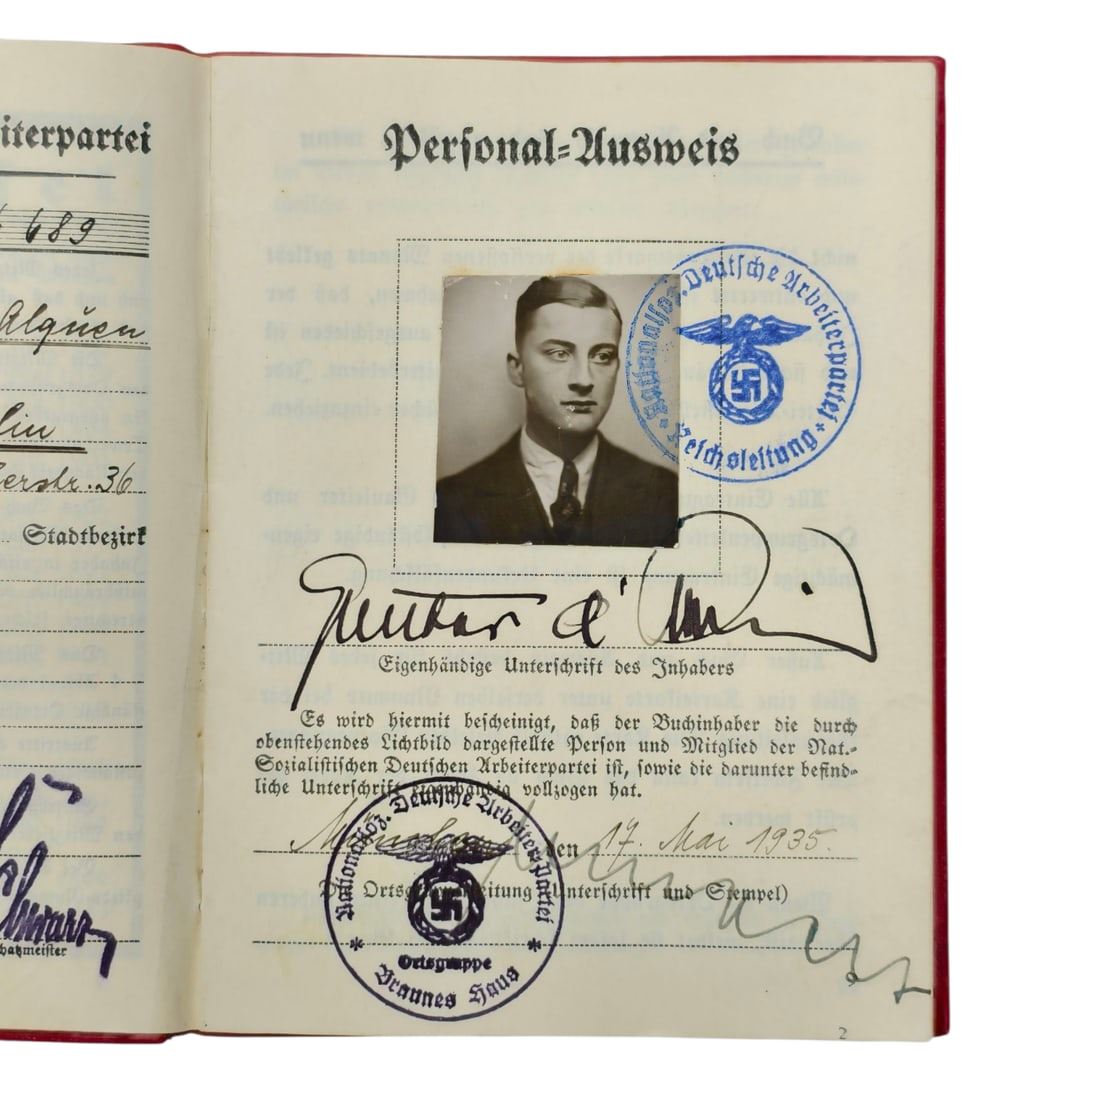 iterpartei
689
Alquen
lin
erstr. 36
Stadtbezirk
hatzmeister
Personal-Ausweis
Nationalsoz. Deutsche Arbeiterpartei
* Reichsleitung *
Gunter d'Alquen
Eigenhändige Unterschrift des Inhabers
Es wird hiermit bescheinigt, daß der Buchinhaber die durch
obenstehendes Lichtbild dargestellte Person und Mitglied der Nat.-
Sozialistischen Deutschen Arbeiterpartei ist, sowie die darunter befind-
liche Unterschrift eigenhändig vollzogen hat.
München den 17. Mai 1935.
Ortsgruppenleitung (Unterschrift und Stempel)
Nationalsoz. Deutsche Arbeiterpartei
Ortsgruppe
* Braunes Haus *
2